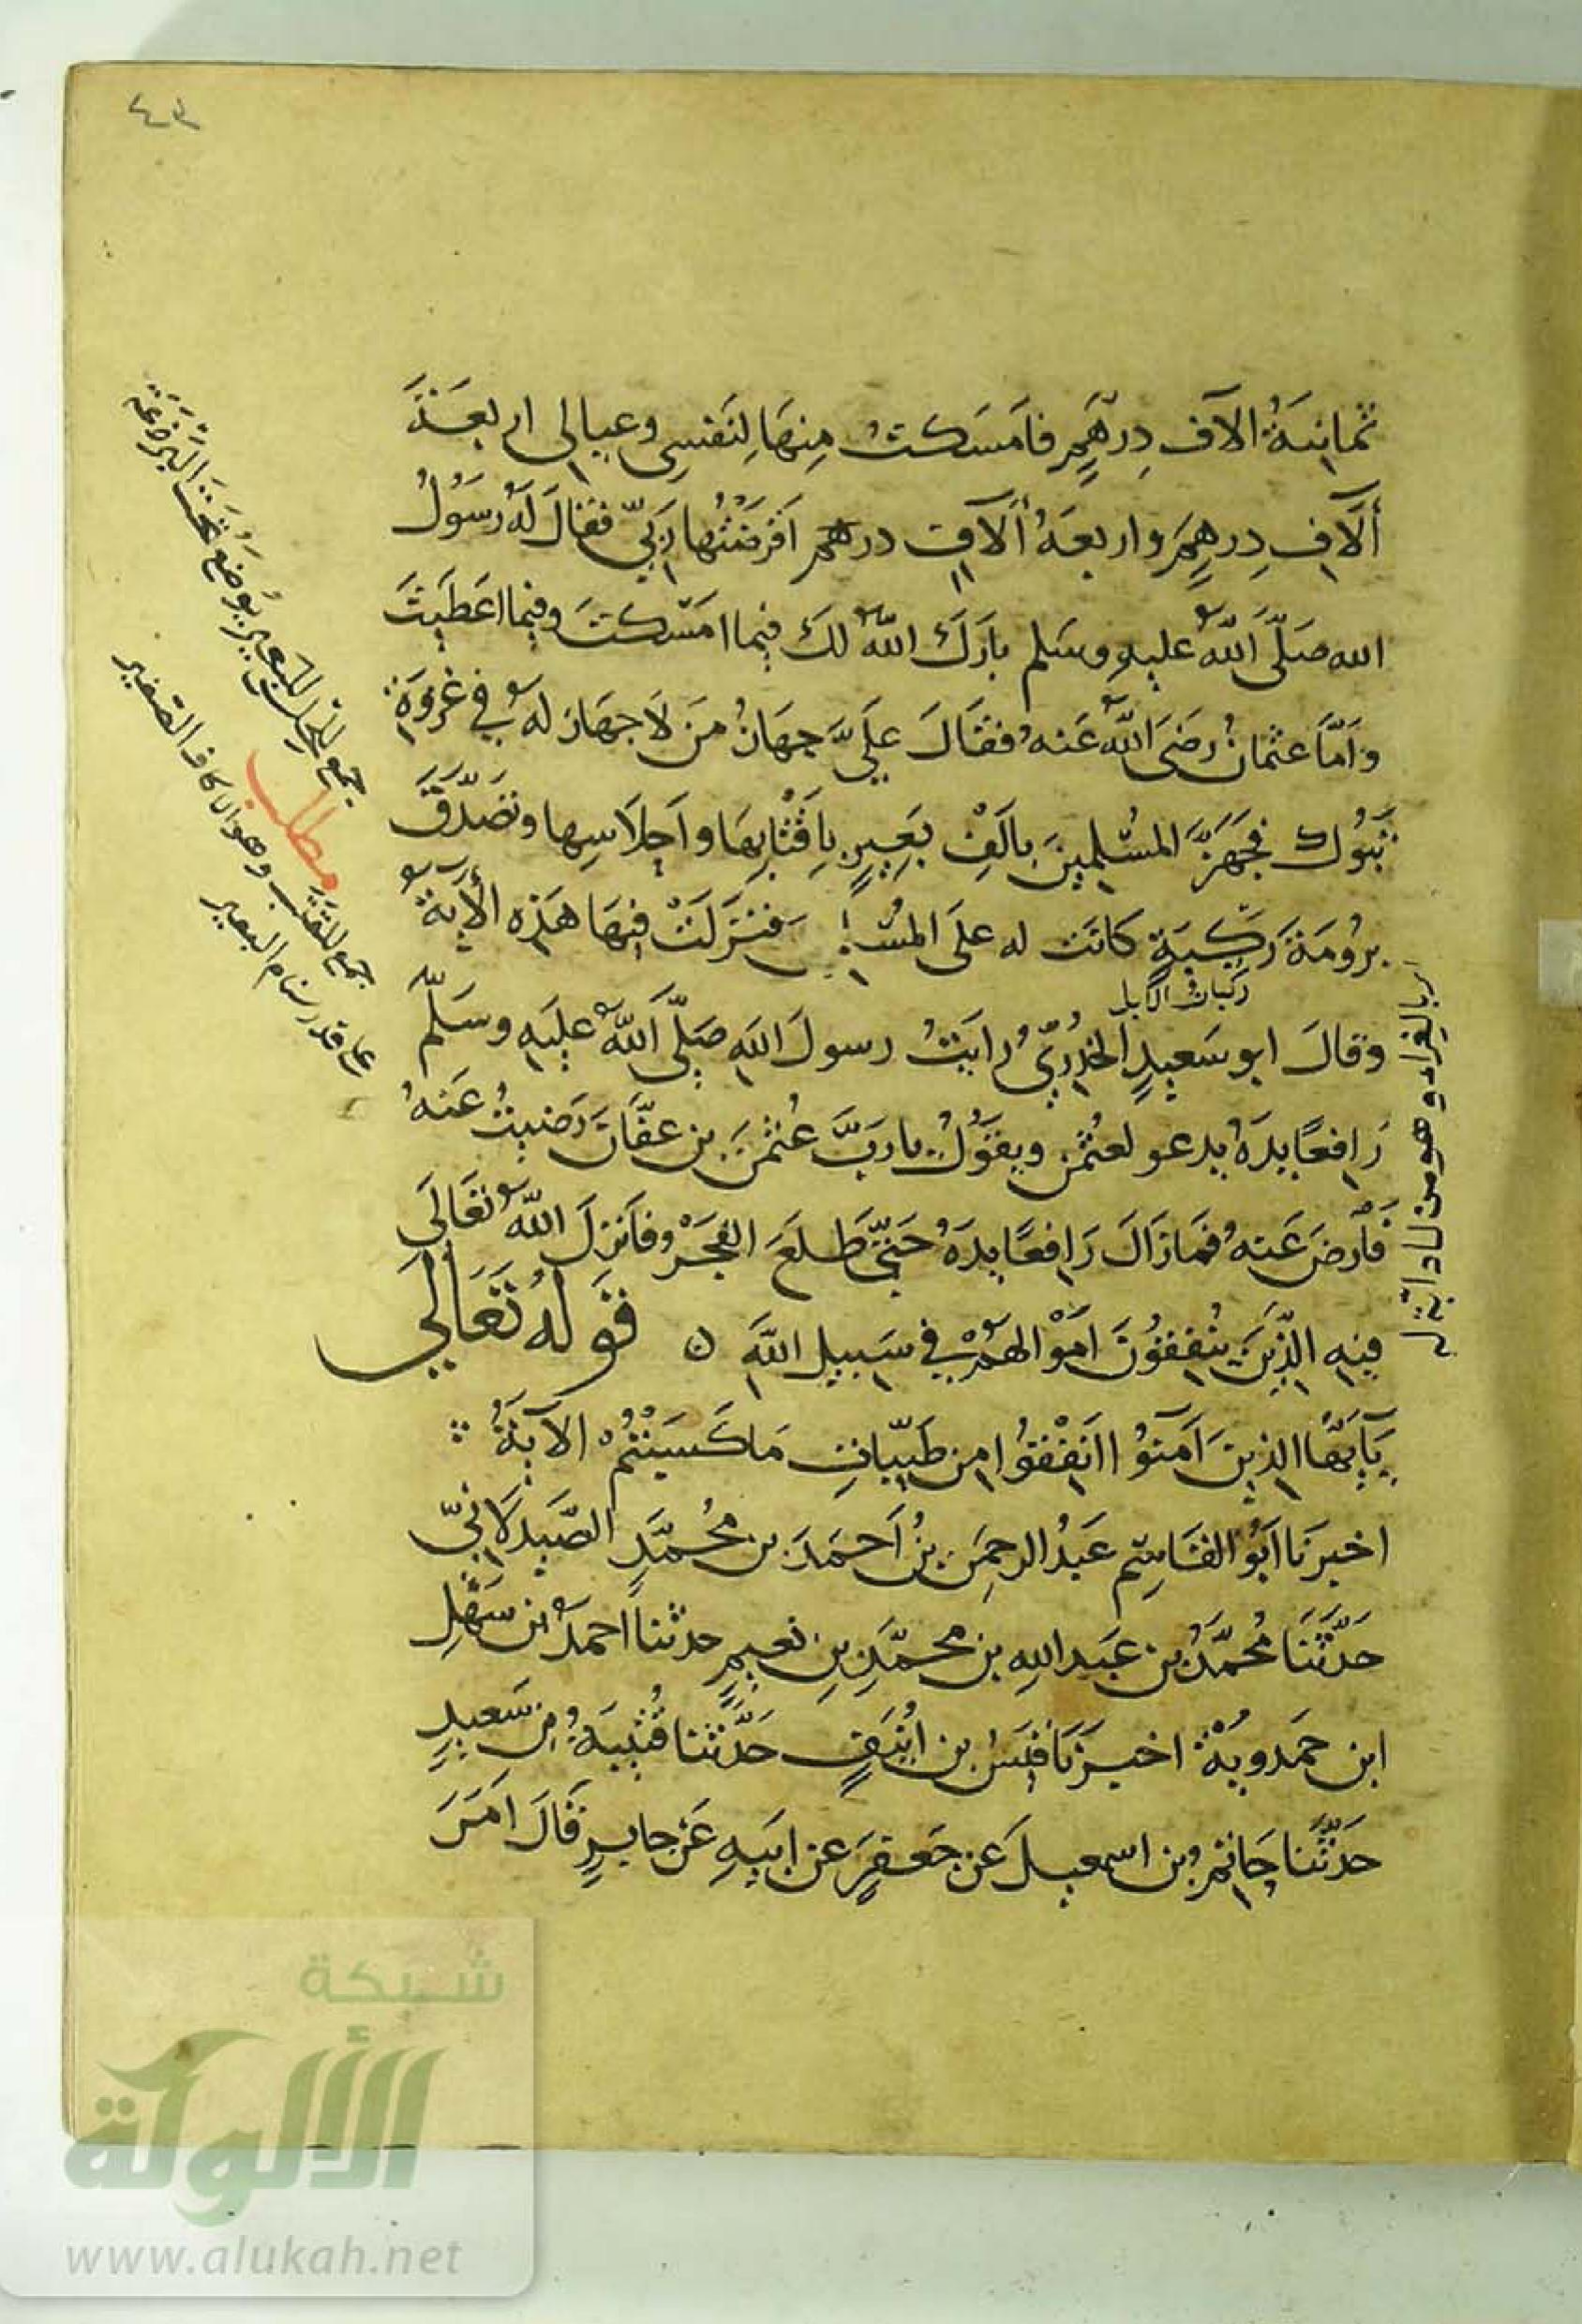 ٤٣
ثمانيَةُ الآف دِرهَمٍ فامَسَكتُ مِنهَا لِنَفسِى وعيالى اربعَةَ
ألَآفِ دِرهِمٍ واربعَةُ ألآفِ درهم اَقرضْتُها رَبّي فقالَ لَهُ رسَوُلُ
الله صَلَّى اَللّهُ عليهِ وسَلم بارَكَ اللّهُ لكَ فيما امَسْكتَ وفيما اعَطَيتَ
وَاَمَّا عثمانُ رضَىَ اللّهُ عَنهُ فقَالَ عَلَيَّ جِهَازُ مَن لَا جهَازَ لهُ في غزوَةِ
تَبُوك فجَهَزَّ المسْلِمينَ بِالَفِ بَعِيرٍ بِاَقْتَابِهَا واَحِلَاسِها وتصَدّقَ
برُومَة رَكِيَّةٍ كانَت له علىَ المسُ فنَزَلَتْ فِيهَا هَذِه الأيَةُ
ركبات الابل
وَقالَ ابو سَعيدٍ الخُدْرِيُّ رايَتُ رسولَ اللهِ صَلَّى اَللّهُ عليَهِ وسَلّم
رَافعًا يدَهُ يدعو لعُثمن ويقوُلُ يا ربَّ عُثمنَ بن عفَّانَ رَضيتُ عَنهُ
فَاَرضَ عَنهُ فمَا زَالَ رَافعًا يدَهُ حَتّى طَلعَ الفجَرُ وفاَنزلَ اللّهُ تعَالىَ
فيهِ الذّينَ يُنفِقُونَ اَمْوالهُمْ في سَبيلِ اللهِ ٥ قَولهُ تَعَالىَ
يَآيَهُّا الذِينَ اَمنَوُا انَفِقُوا مِن طَيِّباتِ مَا كَسَبْتُمْ الآيَةُ
اخبرنَا ابَوُ القَاسِم عَبدُ الرحمِنَ بنُ اَحمَدَ بن محُمَّدٍ الصّيَدلَانِيّ
حَدَّثَنا مُحمَّدُ بن عَبَد اللهِ بن محمَّدِ بنِ نعيمٍ حدثنا احمدُ بن سَهْلِ
ابن حَمدويَةْ اخبرَنَا قيَسُ بن اُنَيفٍ حَدَّثنا قُتَيبَةُ بن سَعيدٍ
حَدثَّنا حَاتم بن اسمعيلَ عَن جَعفرٍ عن ابيَهِ عَن جابرٍ قَالَ امَرَ
جمع الحلس للبعير يوُضَعُ تحَتَ البَرذَعَة
مطلب
جمع القتب وهو الاكاف الصغير
على قدر سنام البعير
شبكة
الألوكة
www.alukah.net